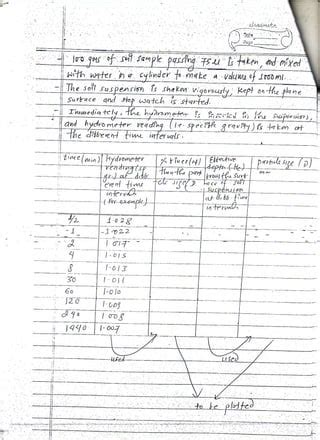 - 100 gms of soil sample passing 75 u is taken, and mixed
with water in a cylinder to make a volume of 1000ml.
- The soil suspension is shaken vigorously, kept on the plane
surface and stop watch is started.
- Immediately, the hydrometer is inserted in the suspension,
and hydrometer reading (i.e. specific gravity) is taken at
the different time intervals.
time (min) | Hydrometer | % finer (N) | Effective | particle size (D)
reading (sp. | than the part | depth (He) | mm
gr.) at diff | cle size, D | from the surf
erent time | ace of soil
intervals | suspension
(for example) | at diff. time
intervals
1/2 1.028
1 1.022
2 1.017
4 1.015
8 1.013
30 1.011
60 1.010
120 1.009
240 1.008
1440 1.007
used used
to be plotted